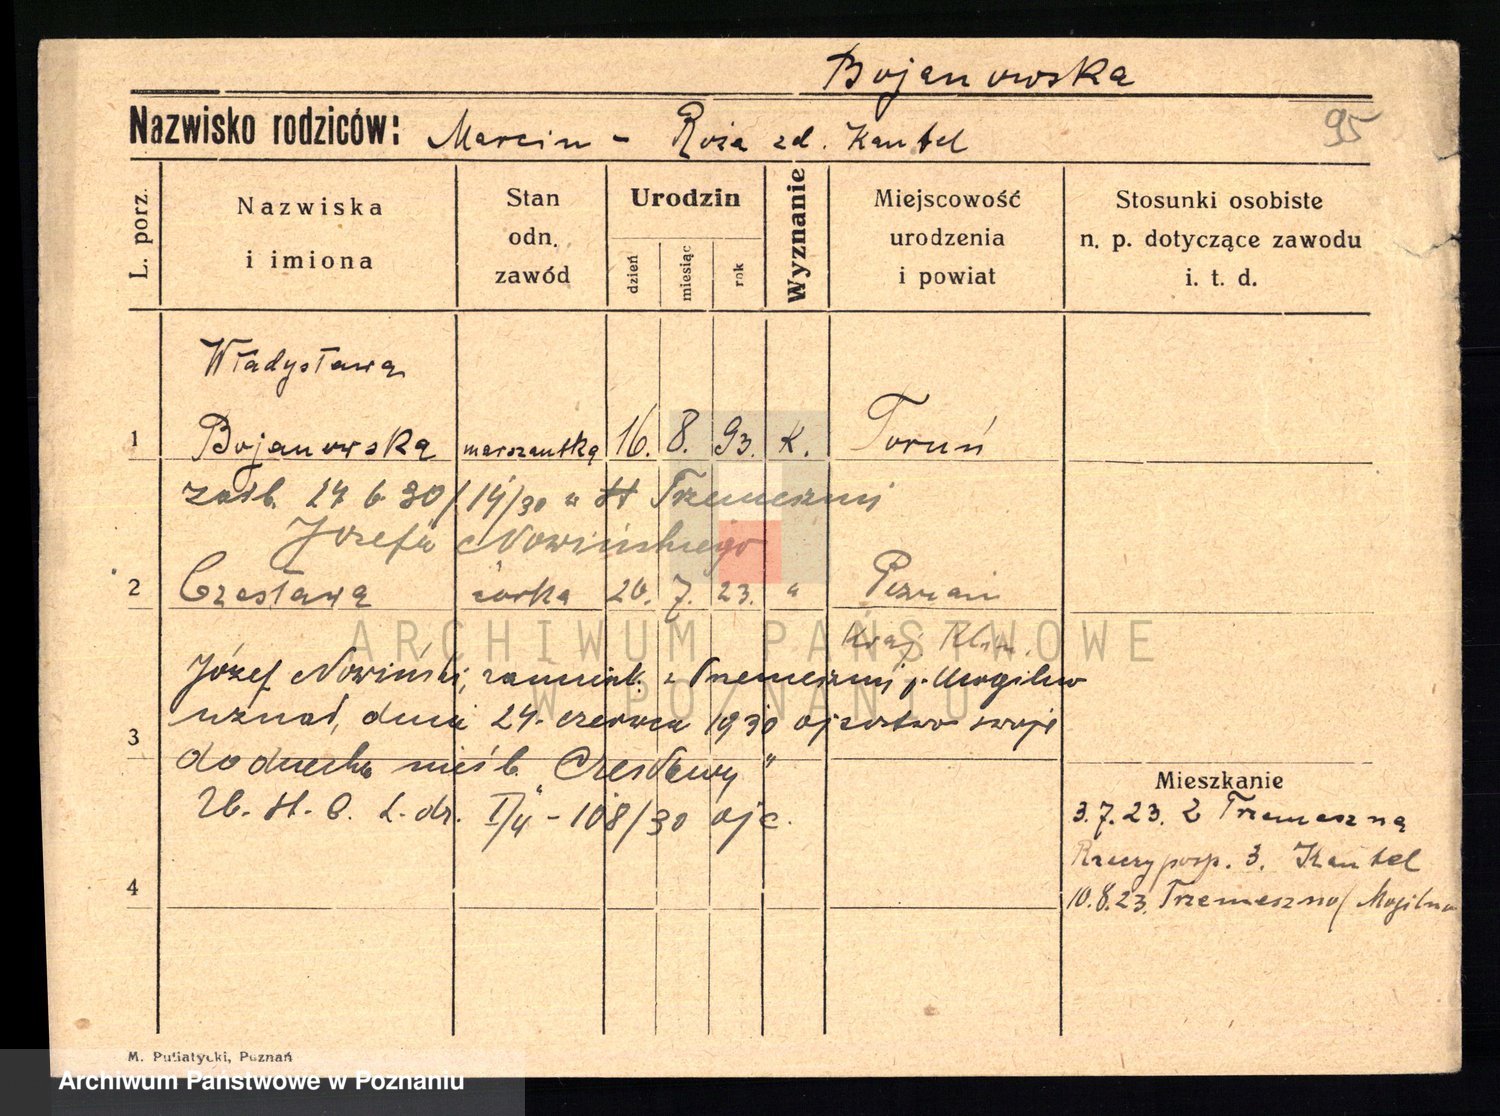 Bojanowska
Nazwisko rodziców: Marcin - Roża zd. Kantel
95
L. porz.
Nazwiska
i imiona
Stan
odn.
zawód
Urodzin
dzień
miesiąc
rok
Wyznanie
Miejscowość
urodzenia
i powiat
Stosunki osobiste
n. p. dotyczące zawodu
i. t. d.
Władysława
1 Bojanowska 16. 8. 93. K. Toruń
24 6 30 / 14/30 Trzemesznij
Józefa Nowińskiego
2 Czesława córka 20. 7. 23. " Poznań
Józef Nowiński, z Trzemesznij p. Mogilno
uznał, dnia 24. czerwca 1930 ojcostwo swoje
3
do dziecka nieśl. "Czesławy"
108/30 ojc.
4
Mieszkanie
3.7.23. Z Trzemeszna
Rzeczyposp. 3. Kantel
10.8.23. Trzemeszno/ Mogilno
M. Putiatycki, Poznań
ARCHIWUM PAŃSTWOWE
W POZNANIU
Archiwum Państwowe w Poznaniu